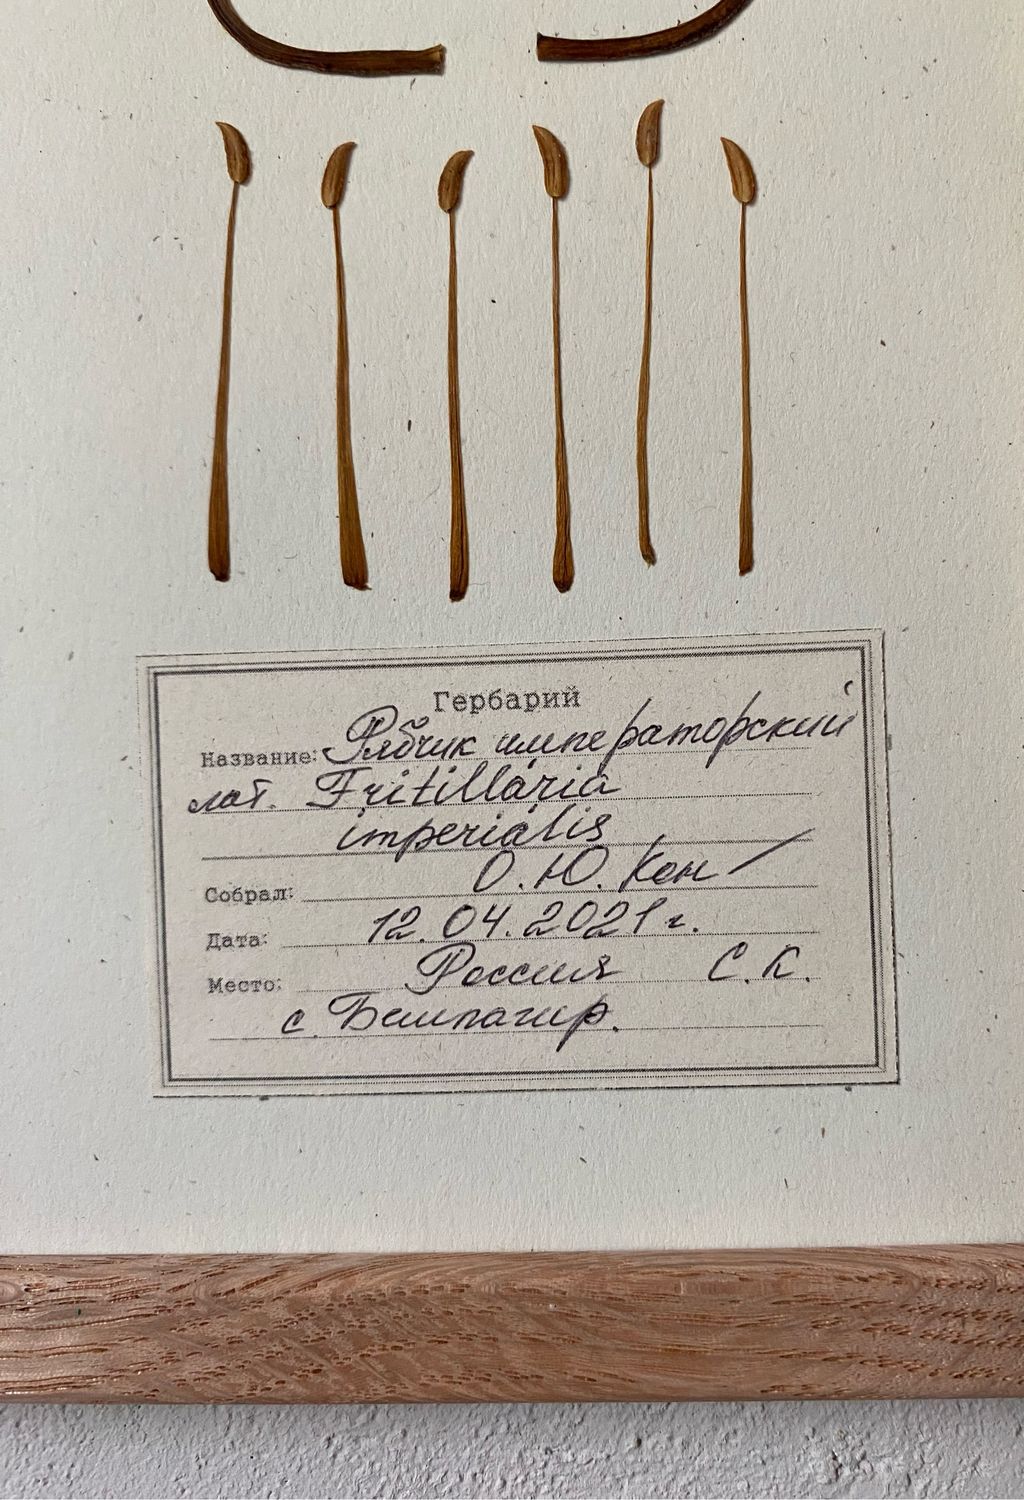 Гербарий
Название: Рябчик императорский
лат. Fritillária
imperiális
Собрал: О. Ю. Кон
Дата: 12.04.2021 г.
Место: Россия С. К.
с. Бешпагир.